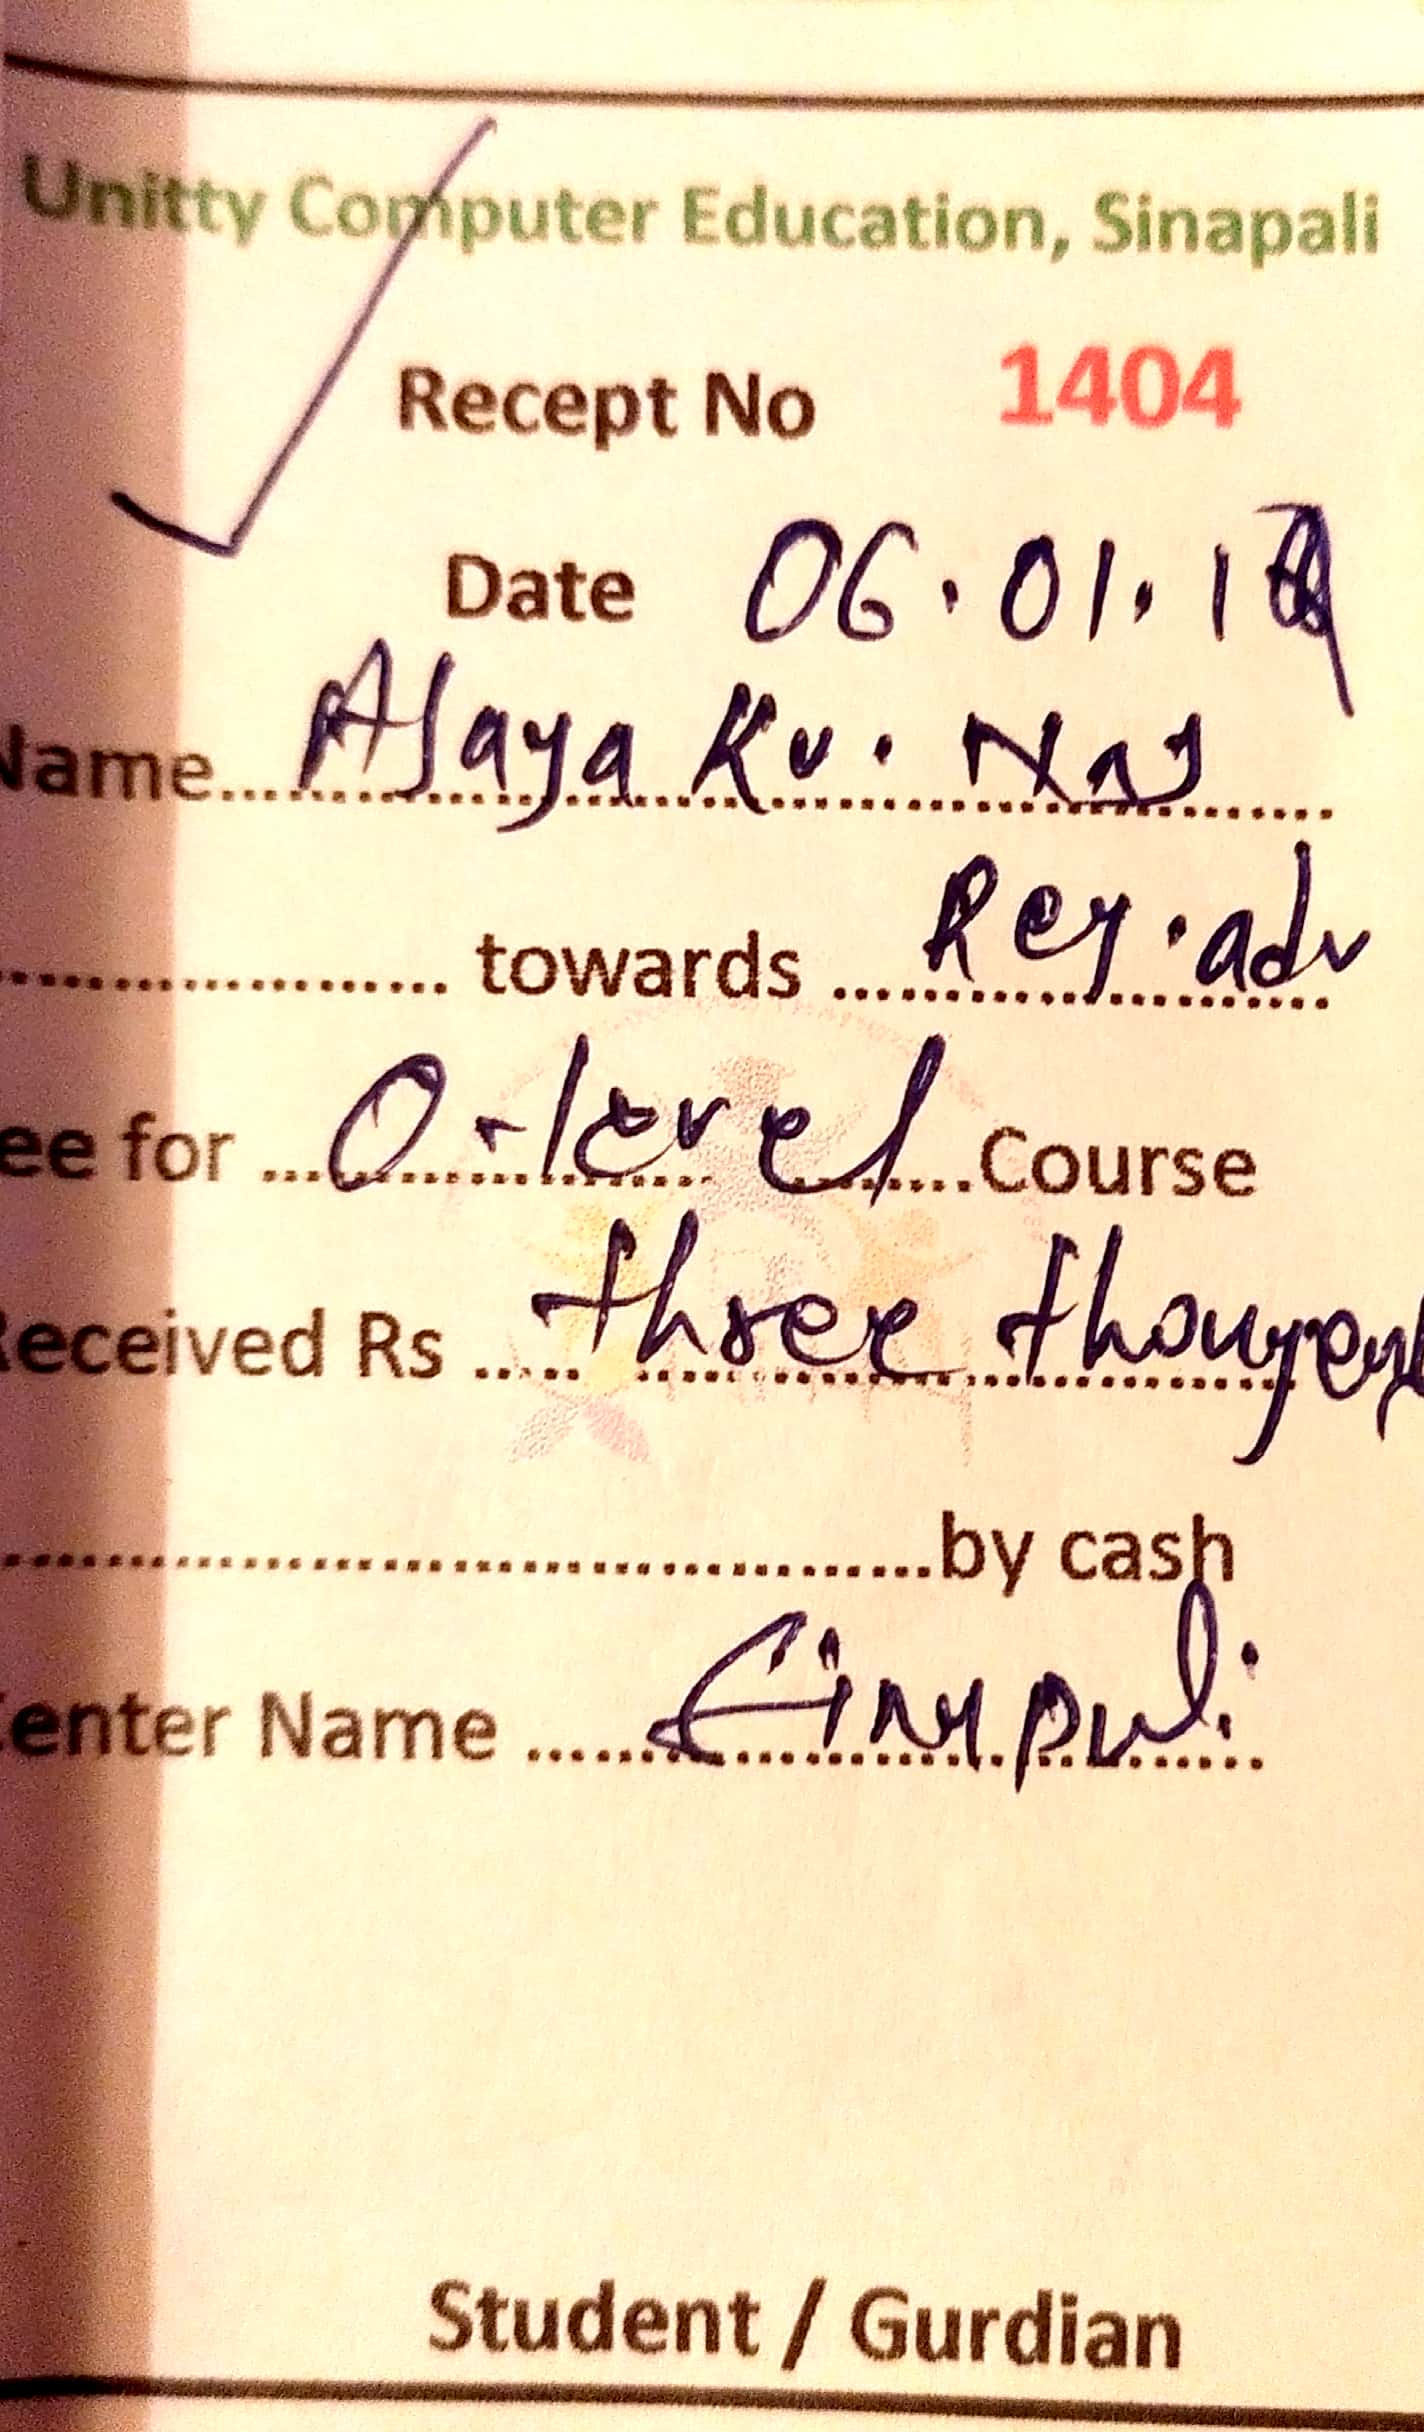 Unitty Computer Education, Sinapali
Recept No 1404
Date 06.01.1
Name... Ajaya Ku. Nag
... towards ... Reg. adv
ee for ... O-level ... Course
Received Rs ... three thousand
...by cash
Center Name ... Sinapali
Student / Gurdian